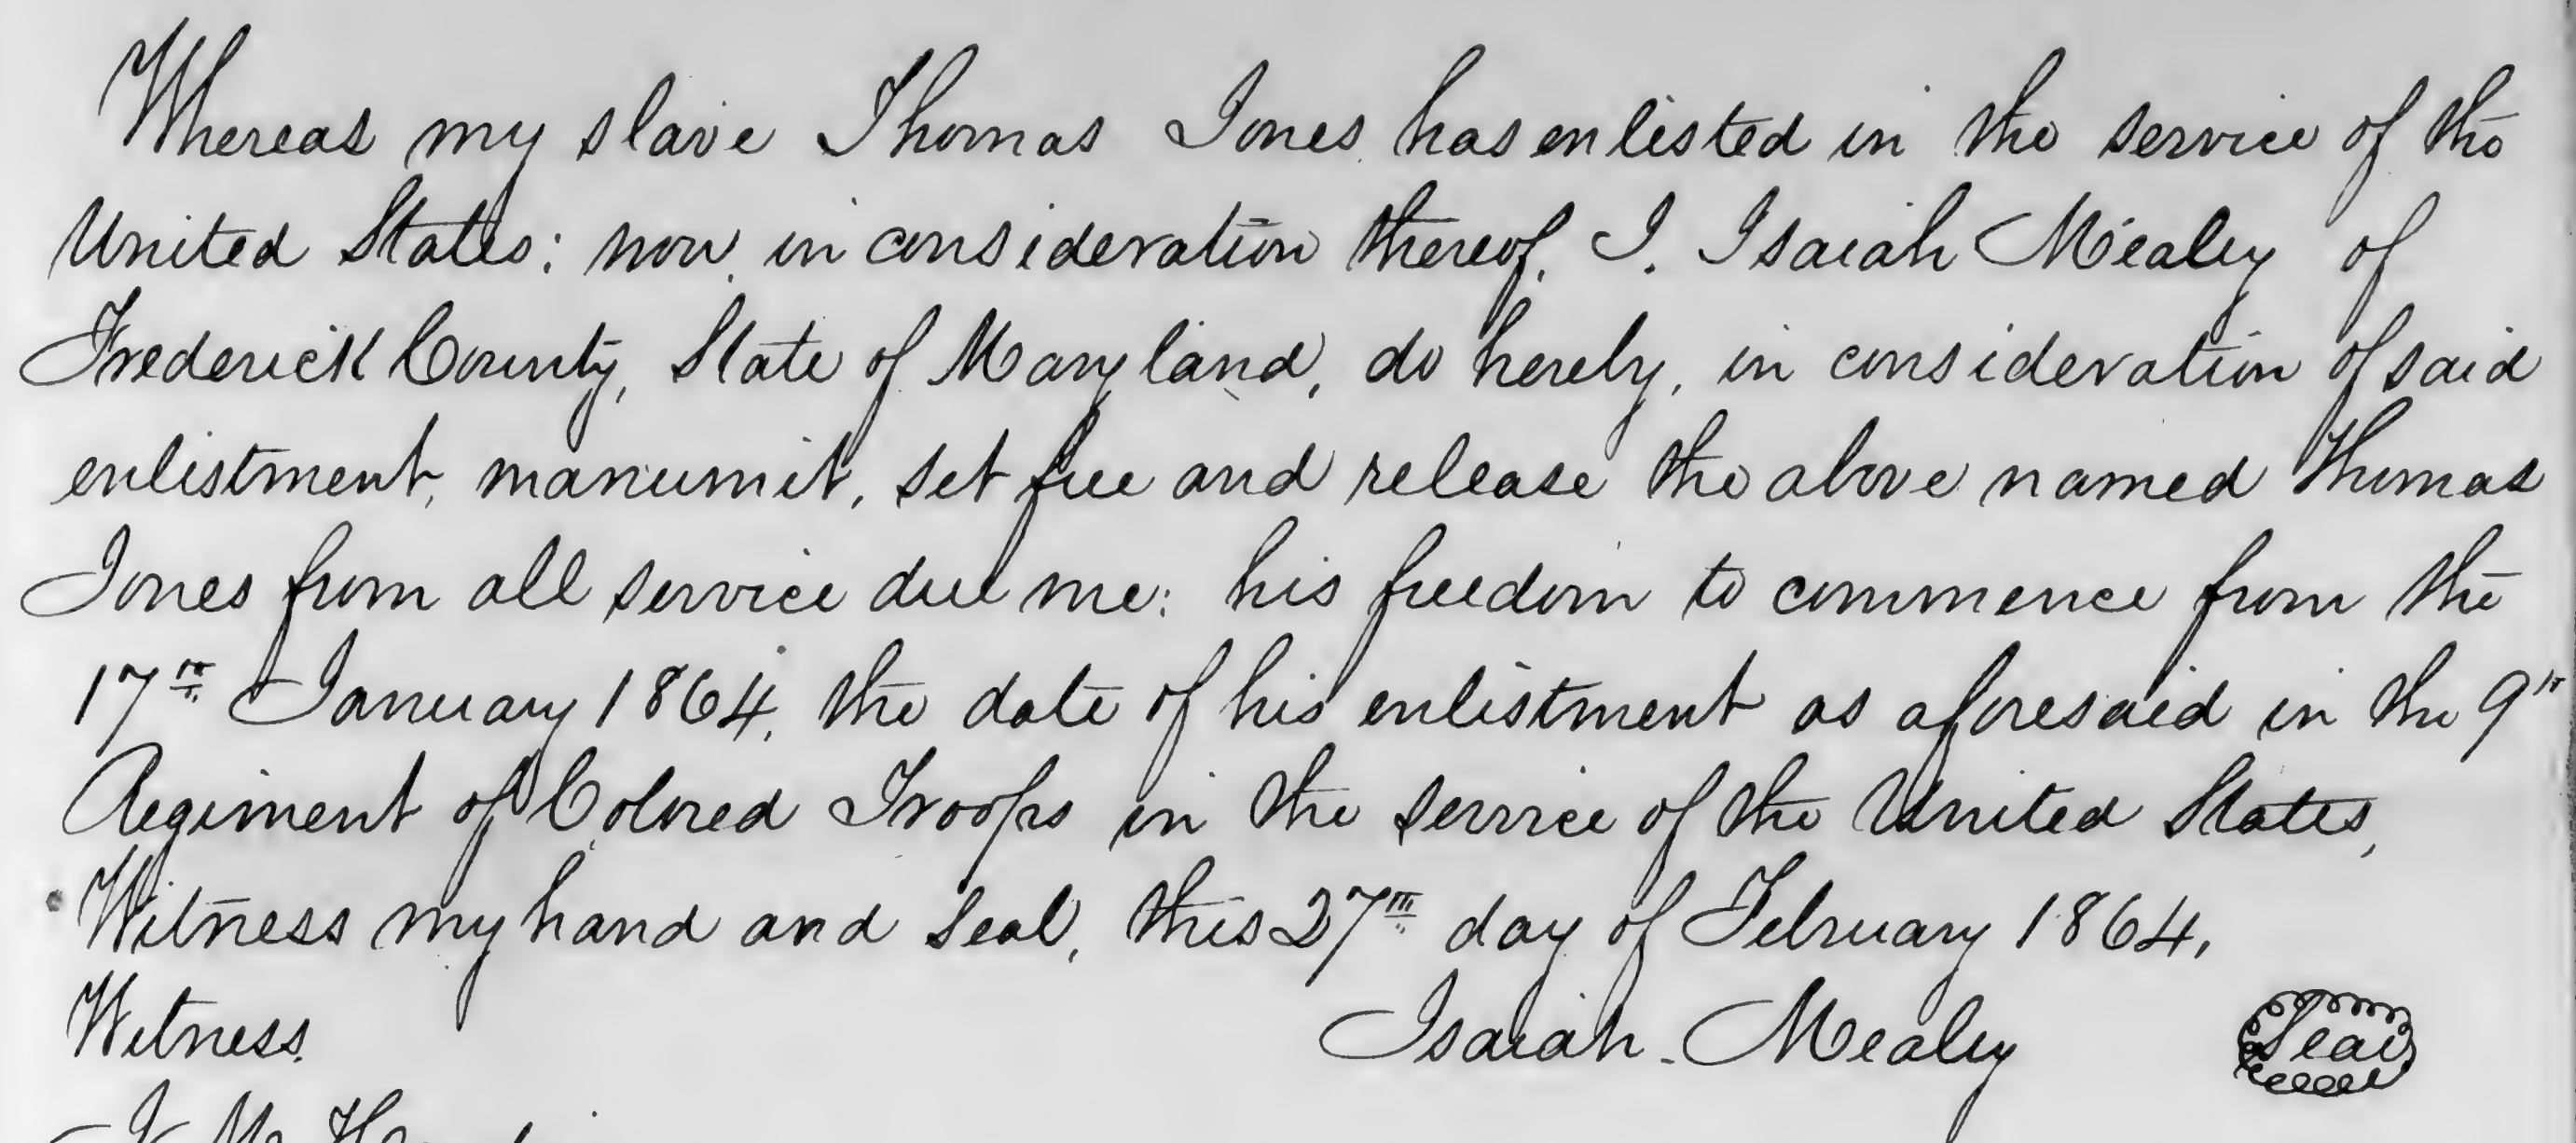 Whereas my slave Thomas Jones has enlisted in the service of the
United States: now, in consideration thereof, I, Isaiah Mealey of
Frederick County, State of Maryland, do herely, in consideration of said
enlistment, manumit, set free and release the above named Thomas
Jones from all service due me: his freedom to commence from the
17th January 1864, the date of his enlistment as aforesaid in the 9th
Regiment of Colored Troops in the service of the United States,
Witness my hand and seal, this 27th day of February 1864,
Witness. Isaiah Mealey Seal